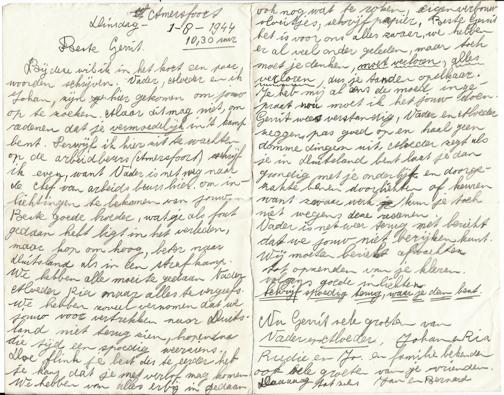 Amersfoort
Dinsdag - 1-8-1944
10,30 uur
Beste Gerrit.
Bij deze wil ik in het kort een paar
woorden schrijven. Vader, Moeder en ik
Johan, zijn hier gekomen om jouw
op te zoeken. Maar dit mag niet, om
redenen dat je vermoedelijk in 't kamp
bent. Terwijl ik hier zit te wachten
op de arbeidbeurs (Amersfoort) schrijf
ik even, want Vader is net weg naar
de chef van arbeids beurs hier, om in-
lichtingen te bekomen van jouw.
Beste goede broeder, wat je als fout
gedaan hebt ligt in het verleden,
maar, hop om hoog, beter naar
Duitsland als in een strafkamp.
We hebben alle moeite gedaan Vader
Moeder Ria maar alles te vergeefs.
We hebben vernomen dat we
jouw voor vertrekken naar Duits-
land niet terug zien, hopende
die tijd een spoedig weerziens.
Doe flink je best des te eerder het
kans, dat je met verlof mag komen
We hebben van alles erbij in gedaan
ook nog wat te roken, eigenverbouw
vloeitjes, schrijf papier, Beste Gerrit
het is voor ons alles zwaar, we hebben
er al veel onder geleden, maar toch
moet je denken, moed verloren, alles
verloren, dus je tanden opelkaar.
Je hebt mij al eens de moed inge-
praat nou moet ik het jouw doen.
Gerrit wees verstandig, Vader en Moeder
zeggen, pas goed op en haal geen
domme dingen uit, Moeder zegt als
je in Duitsland bent laat je dan
grondig met je onderlijf en doorge-
zakte benen doorlichten of keuren
want zwaar werk kun je toch
niet wegens deze redenen.
Vader is net weer terug met bericht
dat we jouw niet bereiken kunt.
Wij moeten bericht afwachten
tot opzenden van je kleren.
volgens goede inlichten
schrijf spoedig terug, waar je dan bent.
Nu Gerrit vele groeten van
Vader en Moeder, Johan en Ria
en Jo. en familie bekende
ook vele groeten van je vrienden.
Daaaag tot ziens Jan en Bernard